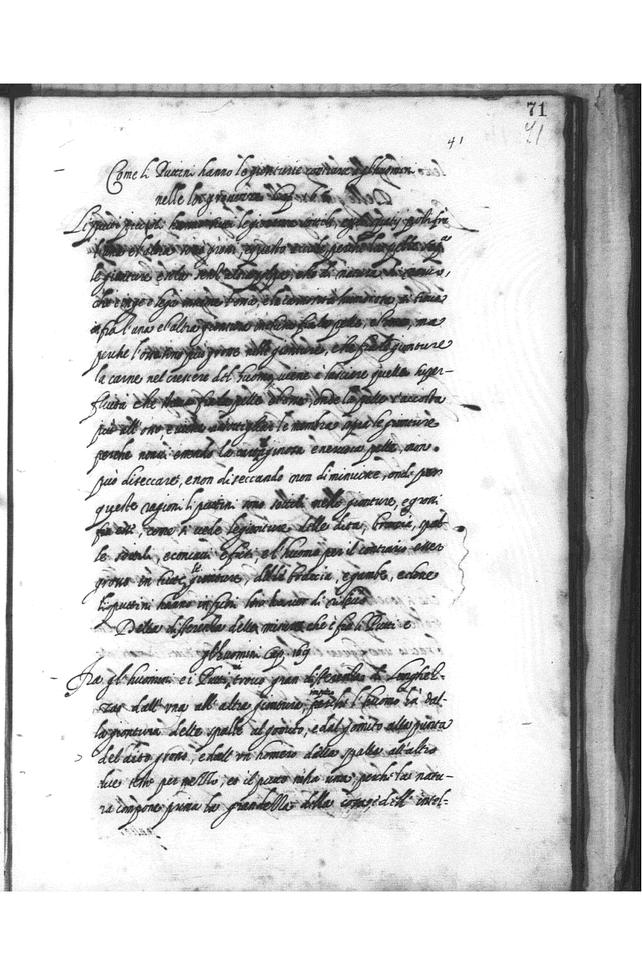 71
41
41
Come li Puttini hanno le gionture contrarie a gl'huomini
nelle lor grossezze Cap.
Li putti piccoli hanno tutti le gionture sottili, e gli spatij posti fra
l'una e l'altra sono grossi, e questo accade perche la pelle sopra
le gionture e sola senz'altra polpa, che di natura di nervo,
che cinge e lega insieme l'ossa, e la carnosità humorosa si trova
fra l'una e l'altra giontura inclusa fra la pelle, e l'osso, ma
perche l'ossa sono più grosse nelle gionture, che fra le gionture
la carne nel crescere dell'huomo viene a lasciare quella super-
fluità che stava fra la pelle e l'osso, onde la pelle s'accosta
più all'osso e viene ad assottigliar le membra, sopra le gionture
perche non v'essendo la cartilaginosa e nervosa pelle, non
può diseccare, e non diseccando non diminuisce, onde per
queste ragioni li puttini sono sottili nelle gionture, e grossi
fra esse, come si vede le gionture delle dita, braccia, spal-
le sottili, e concavi e l'huomo per il contrario esser
grosso in tutte le gionture, delle braccia, e gambe, e dove
li puttini hanno in fuori loro haver di rilievo
Della differenza delle misure che è fra li Putti e
gl'huomini Cap. 169
Fra gl'huomini et i Putti, trovo gran differenza di lunghez-
zas dall'una all'altra giontura, imperò che l'huomo ha dal-
la giontura delle spalle al gomito, e dal gomito alla punta
del dito grosso, e dall'un homero della spalla all'altro
due teste per pezzo, et il putto n'ha una perche la natu-
ra compone prima la grandezza della casa dell'intel-